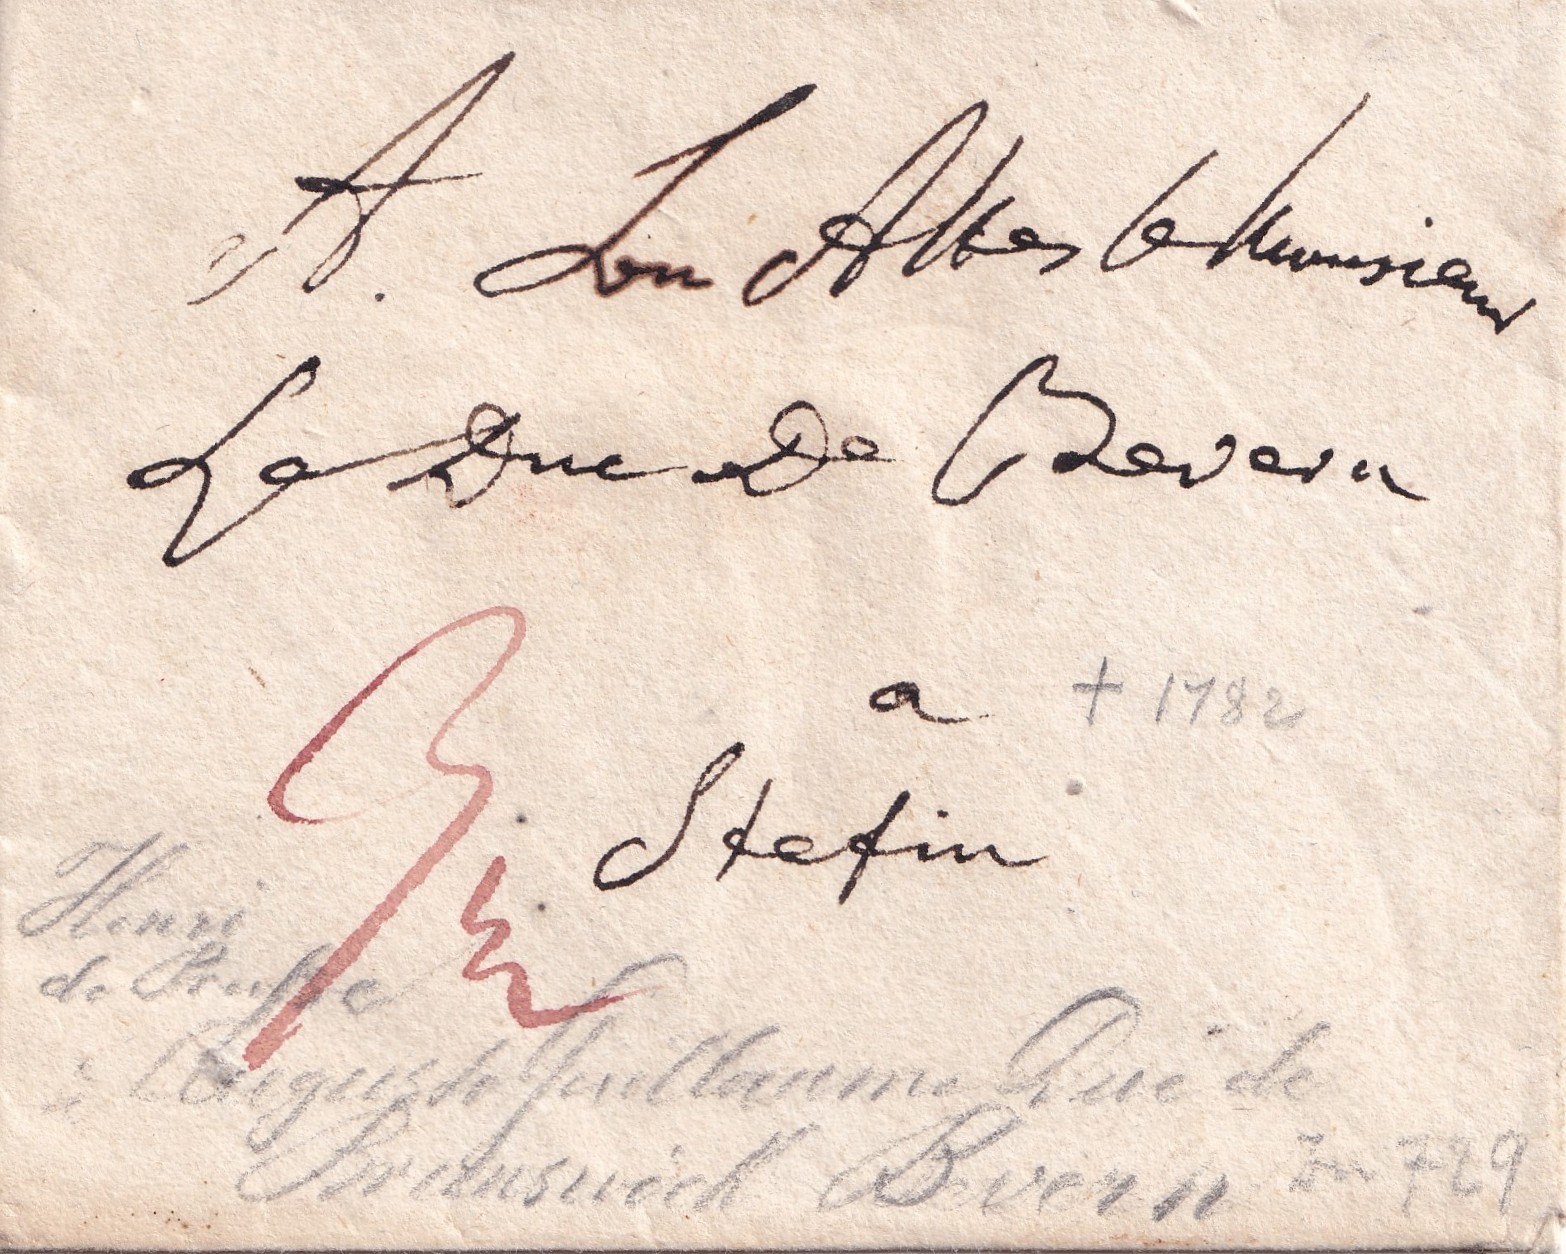 A. Son Altes le Monsieur
Le Duc De Bevern
a
+ 1782
Stetin
Henri
de Prusse
à Auguste Guillaume Duc de
Brunswick Bevern
729